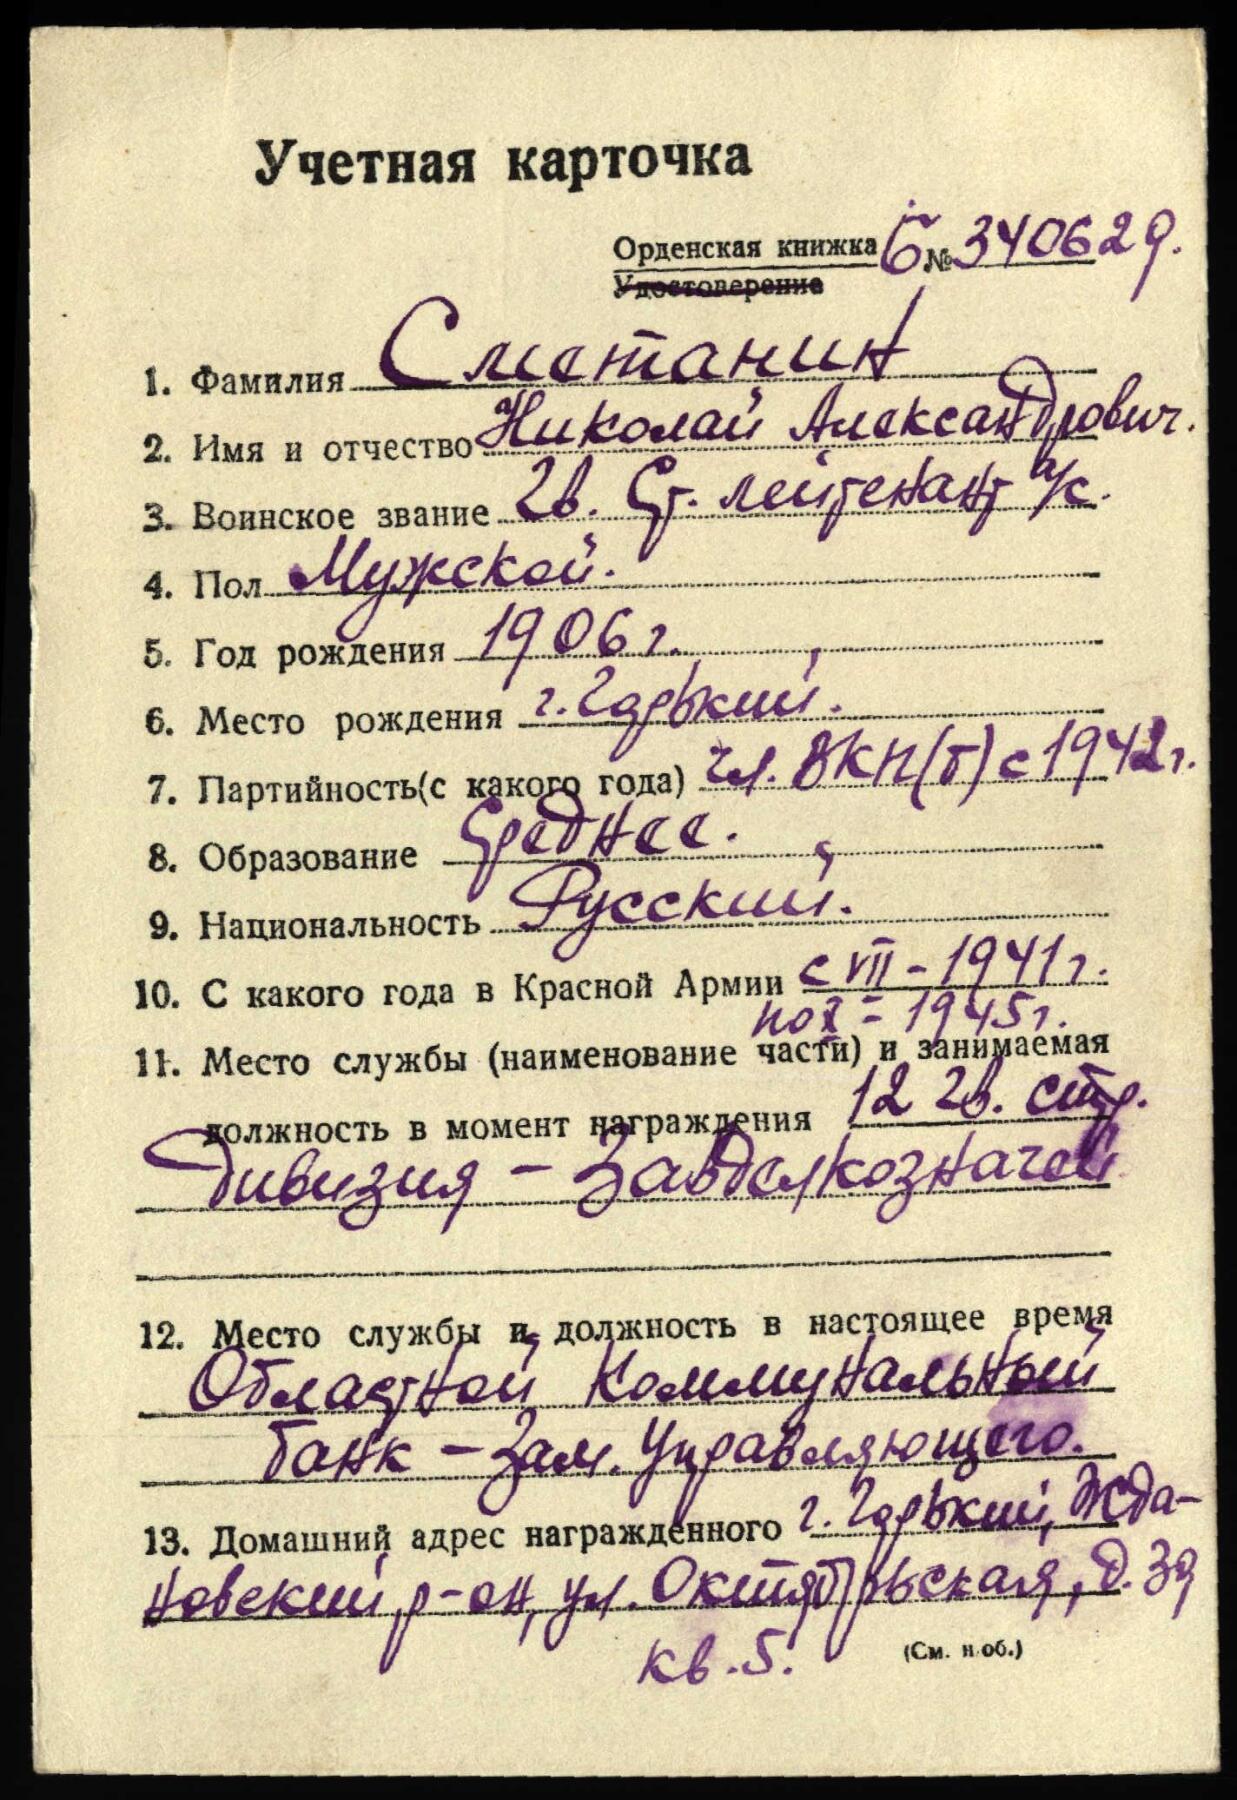 Учетная карточка
Орденская книжка Б № 340629.
Удостоверение
1. Фамилия Сметанин
2. Имя и отчество Николай Александрович.
3. Воинское звание Гв. Ст. лейтенант а/с.
4. Пол Мужской.
5. Год рождения 1906 г.
6. Место рождения г. Горький.
7. Партийность (с какого года) чл. ВКП(б) с 1942 г.
8. Образование Среднее.
9. Национальность Русский.
10. С какого года в Красной Армии с VII - 1941 г.
по X - 1945 г.
11. Место службы (наименование части) и занимаемая
должность в момент награждения 12 гв. стр.
дивизия - Завделказначей
12. Место службы и должность в настоящее время
Областной Коммунальный
банк - Зам. Управляющего.
13. Домашний адрес награжденного г. Горький, Жда-
новский р-он, ул. Октябрьская, д. 39
кв. 5.
(См. н об.)